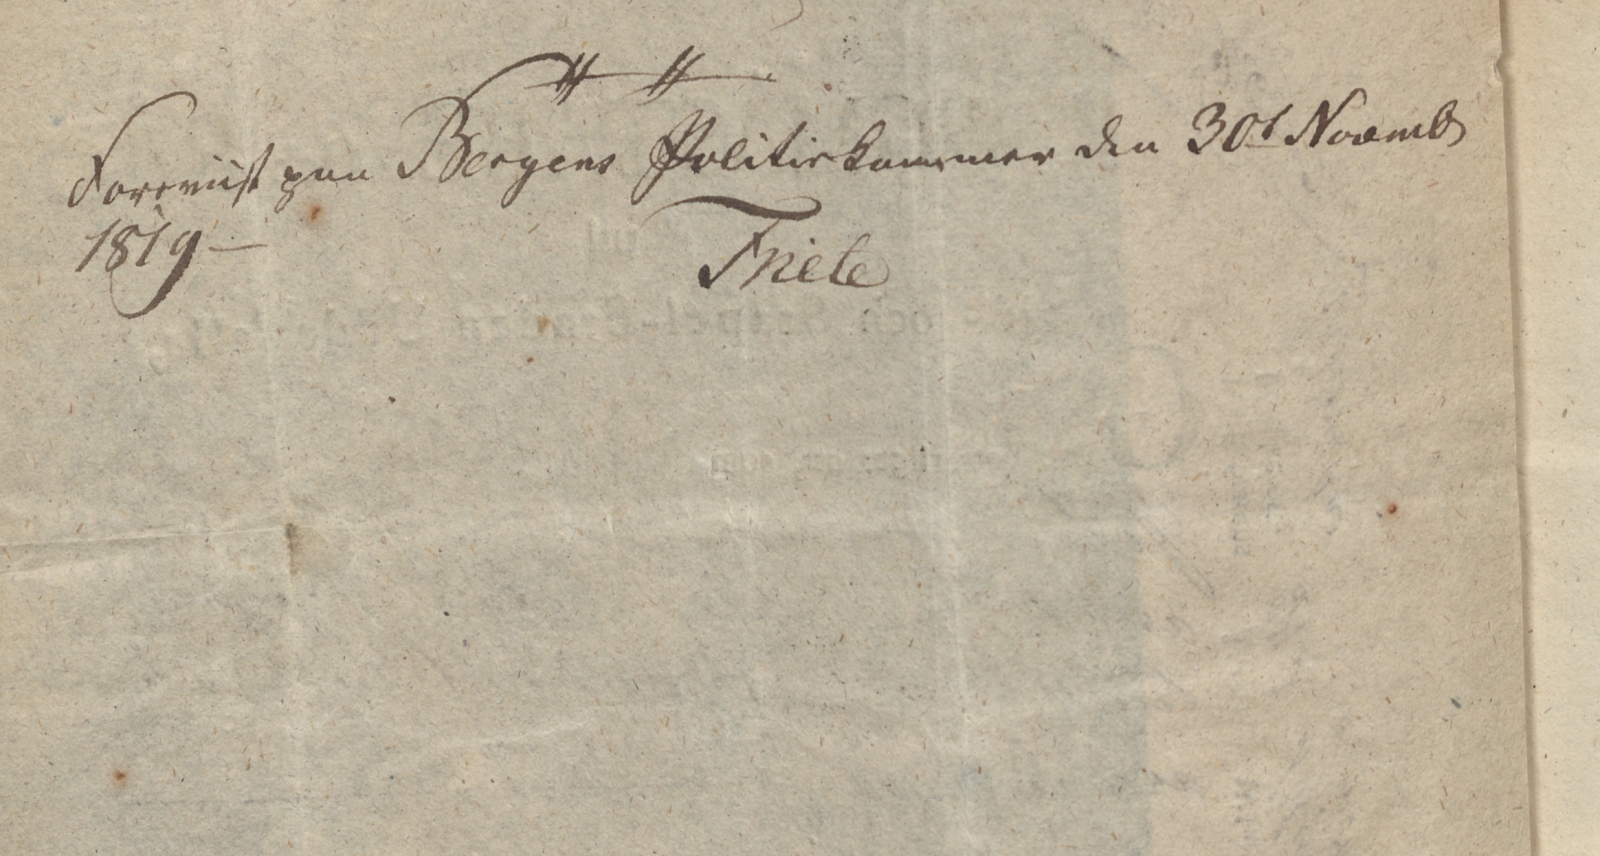 Foreviist paa Bergens Politiekammer den 30t Novemb
1819 —
Friele